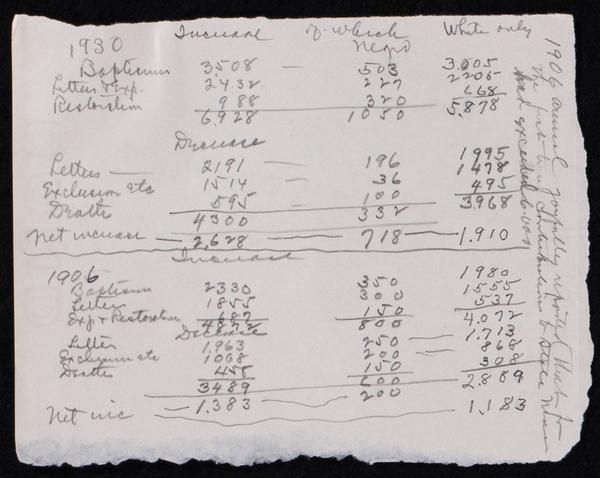 Increase of which White only
1930 Negro
Baptisms 3508 — 503 3.005
Letters & Exp. 2432 227 2205
Restoration 988 320 668
6.928 1050 5.878
Decrease
Letters — 2191 — 196 1995
Exclusion etc 1514 — 36 1478
Deaths 595 — 100 495
4300 332 3968
Net increase — 2,628 — 718 — 1.910
Increase
1906
Baptisms 2330 350 1980
Letters 1855 300 1555
Exp & Restoration 687 150 537
4872 800 4.072
Decrease
Letters 1,963 250 — 1.713
Exclusion etc 1068 200 — 868
Deaths 458 150 308
3489 600 2.889
Net inc — 1.383 200 1,183
1906 annual joyfully reported that for
the first time contributions to State Mission
had exceeded